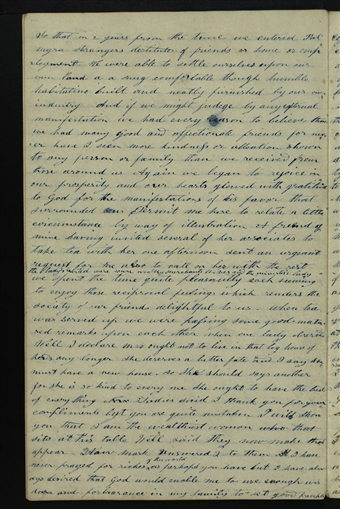 So that in 2 years from the time we entered Pal
myra strangers destitute of friends or home or emp
loyment. We were able to settle ourselves upon our
own land in a snug comfortable though humble
habitation built and neatly furnished by our own
industry And if we might judge by any external
manifestation we had every reason to believe that
we had many good and affectionate friends for nev
er have I seen more kindness or attention shown
to any person or family than we received from
those around us Again we began to rejoice in
our prosperity and our hearts glowed with gratitude
to God for the manifestations of his favor that
surrounded us Permit me here to relate a little
circumstance by way of illustration A friend of
mine having invited several of her associates to
take tea with her one afternoon sent an urgent
request for me also to call on her with the rest
the ladies invited were some wealthy merchants wives and the minister's lady
we spent the time quite pleasantly each seeming
to enjoy those reciprocal feelings which renders the
society of our friends delightful to us. When tea
was served up we were passing some good natu
red remarks upon each other when one lady observed
Well I declare Mrs ought not to live in that log house of
hers any longer she deserves a better fate and I say she
must have a new house. so she should says another
for she is so kind to every one she ought to have the best
of everything Now Ladies said I thank you for your
compliments but you are quite mistaken I will show
you that I am the wealthiest woman who
sits at this table Well said they now make that
appear. Now mark answered I to them I have
never prayed for riches of the world as perhaps you have but I have alw
ays desired that God would enable me to use enough wis
dom and forbearance in my family to set good